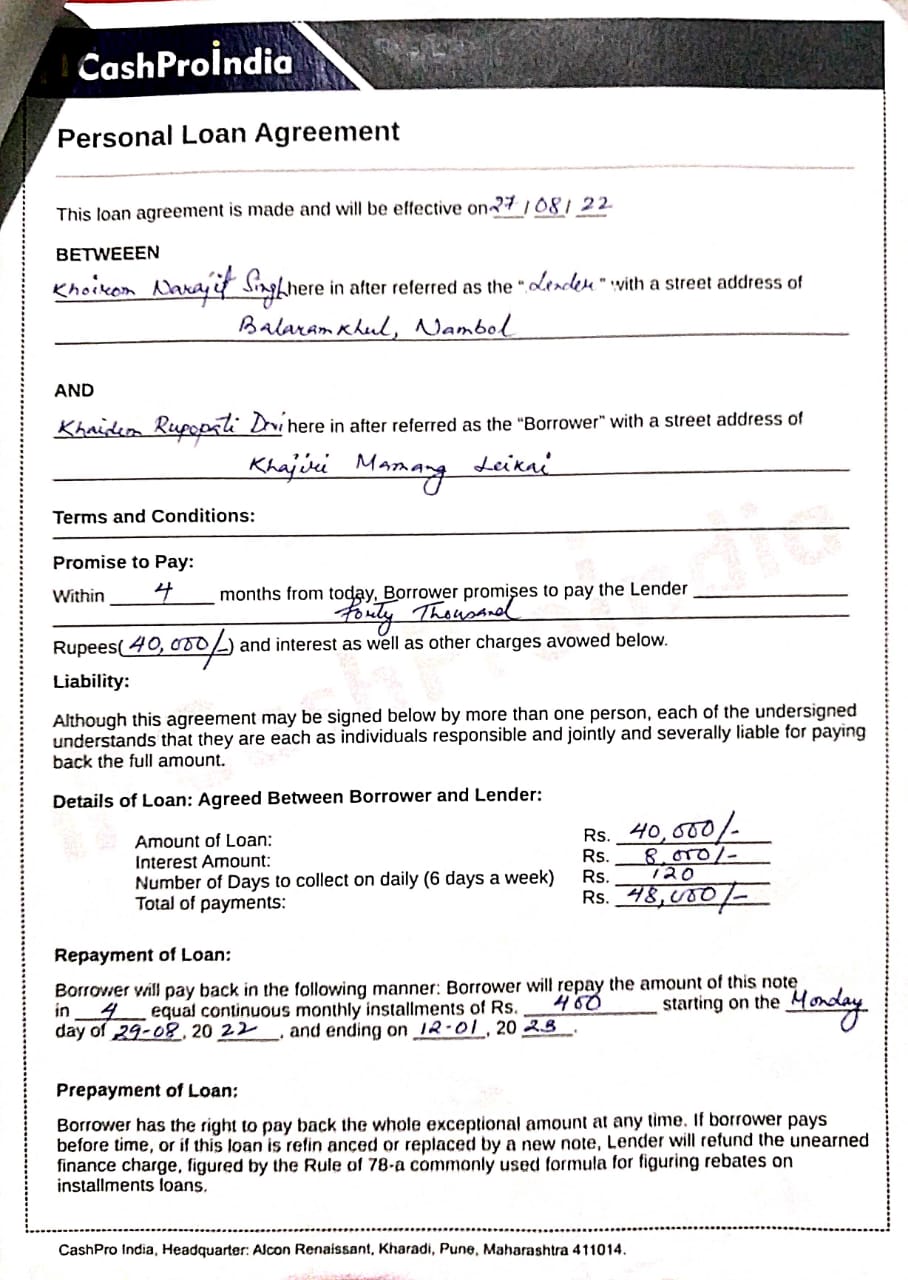 CashProIndia
Personal Loan Agreement
This loan agreement is made and will be effective on 27 / 08 / 22
BETWEEEN
Khoirom Narajit Singh here in after referred as the "Lender" with a street address of
Balaramkhul, Nambol
AND
Khaidem Rupopati Dvi here in after referred as the “Borrower” with a street address of
Khajiri Mamang Leikai
Terms and Conditions:
Promise to Pay:
Within 4 months from today, Borrower promises to pay the Lender
Fourty Thousand
Rupees( 40,000/- ) and interest as well as other charges avowed below.
Liability:
Although this agreement may be signed below by more than one person, each of the undersigned
understands that they are each as individuals responsible and jointly and severally liable for paying
back the full amount.
Details of Loan: Agreed Between Borrower and Lender:
Amount of Loan: Rs. 40,000/-
Interest Amount: Rs. 8,000/-
Number of Days to collect on daily (6 days a week) Rs. 120
Total of payments: Rs. 48,000/-
Repayment of Loan:
Borrower will pay back in the following manner: Borrower will repay the amount of this note
in 4 equal continuous monthly installments of Rs. 400 starting on the Monday
day of 29-08, 20 22, and ending on 12-01, 20 23.
Prepayment of Loan:
Borrower has the right to pay back the whole exceptional amount at any time. If borrower pays
before time, or if this loan is refin anced or replaced by a new note, Lender will refund the unearned
finance charge, figured by the Rule of 78-a commonly used formula for figuring rebates on
installments loans.
CashPro India, Headquarter: Alcon Renaissant, Kharadi, Pune, Maharashtra 411014.